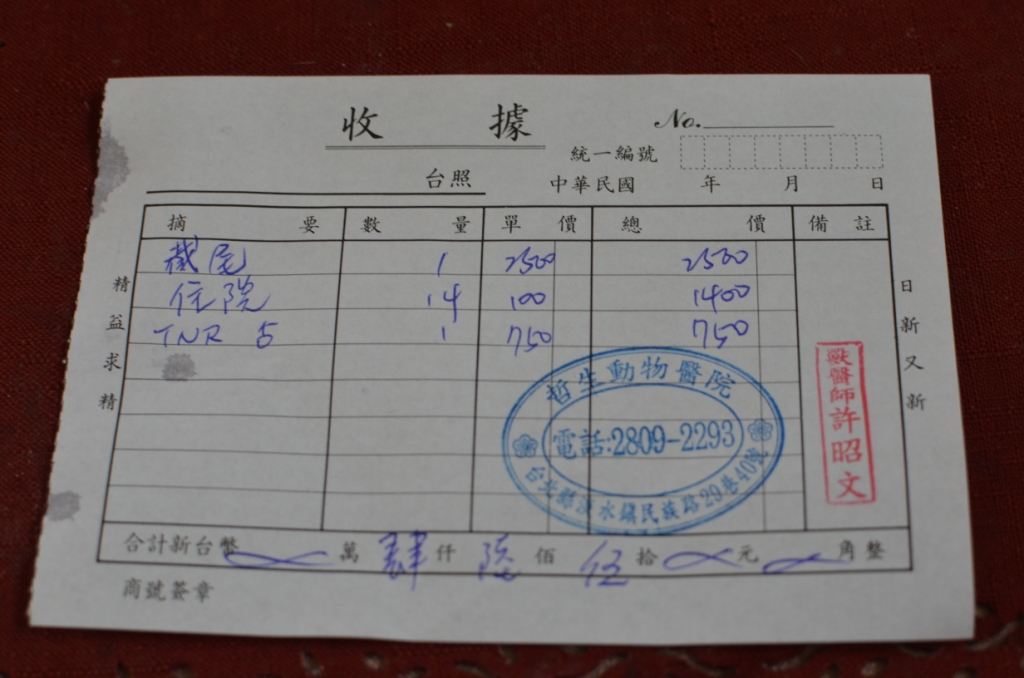 收據
No.
統一編號
台照
中華民國 年 月 日
摘要 數量 單價 總價 備註
截尾 1 2500 2500
住院 14 100 1400
TNR 占 1 750 750
精益求精
日新又新
哲生動物醫院
電話:2809-2293
台北縣淡水鎮民族路29巷40號
獸醫師許昭文
合計新台幣 萬肆仟陸佰伍拾 元 角整
商號簽章